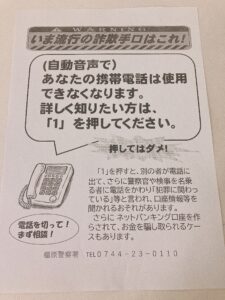 WARNING
いま流行の詐欺手口はこれ!
(自動音声で)
あなたの携帯電話は使用
できなくなります。
詳しく知りたい方は、
「1」を押してください。
押してはダメ!
「1」を押すと、別の者が電話に
出て、さらに警察官や検事を名乗
る者に電話をかわり「犯罪に関わっ
ている」等と言われ、口座情報等を
聞かれるおそれがあります。
さらにネットバンキング口座を作
らされて、お金を騙し取られるケー
スもあります。
電話を切って!
まず相談!
橿原警察署 TEL0744-23-0110